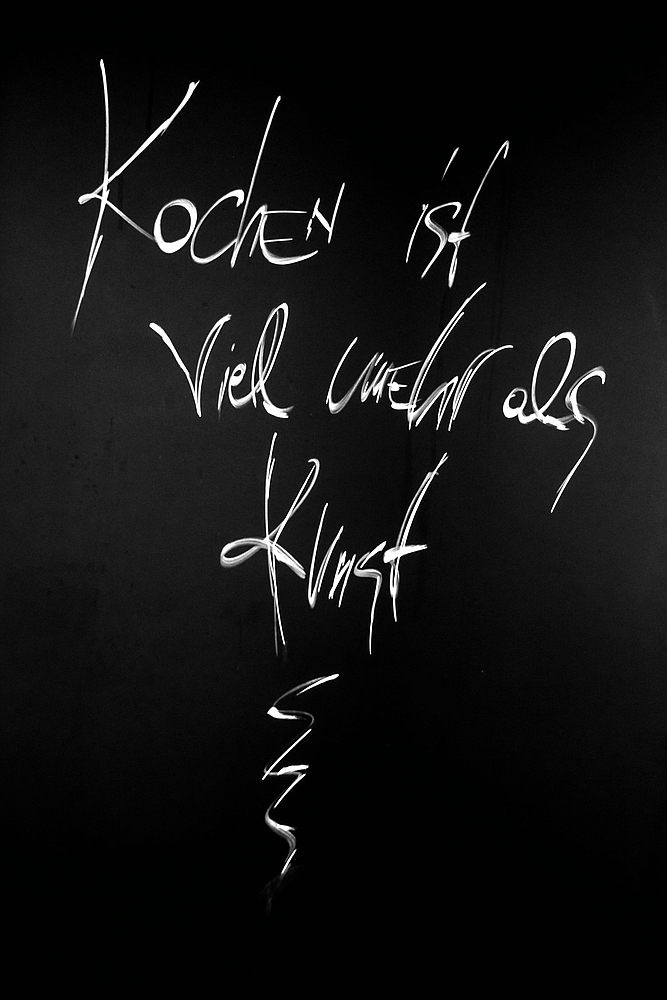 Kochen ist
Viel mehr als
Kunst